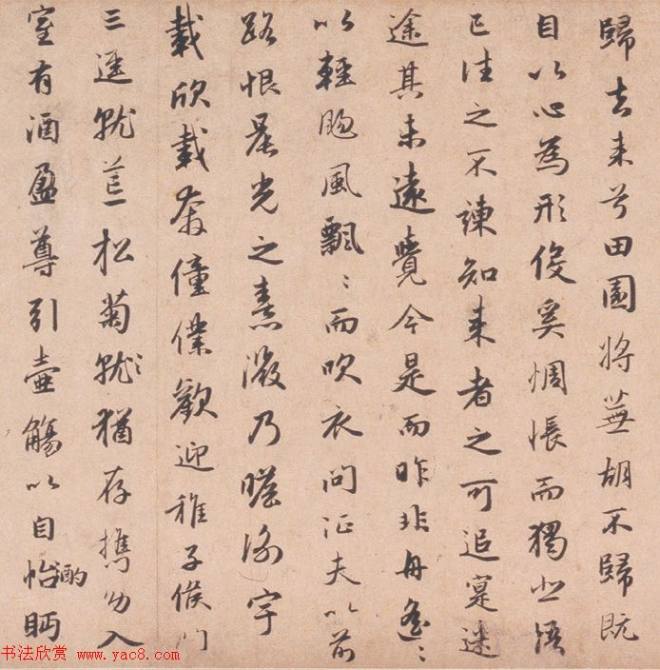 歸去来兮田園將蕪胡不歸既
自以心為形役奚惆悵而獨悲悟
已往之不諫知来者之可追寔迷
途其未遠覺今是而昨非舟遙〻
以輕颺風飄〻而吹衣問征夫以前
路恨晨光之熹微乃瞻衡宇
載欣載奔僮僕歡迎稚子候門
三逕就荒松菊就〻猶存携幼入
室有酒盈尊引壺觴以自怡酌眄
书法欣赏 www.yac8.com